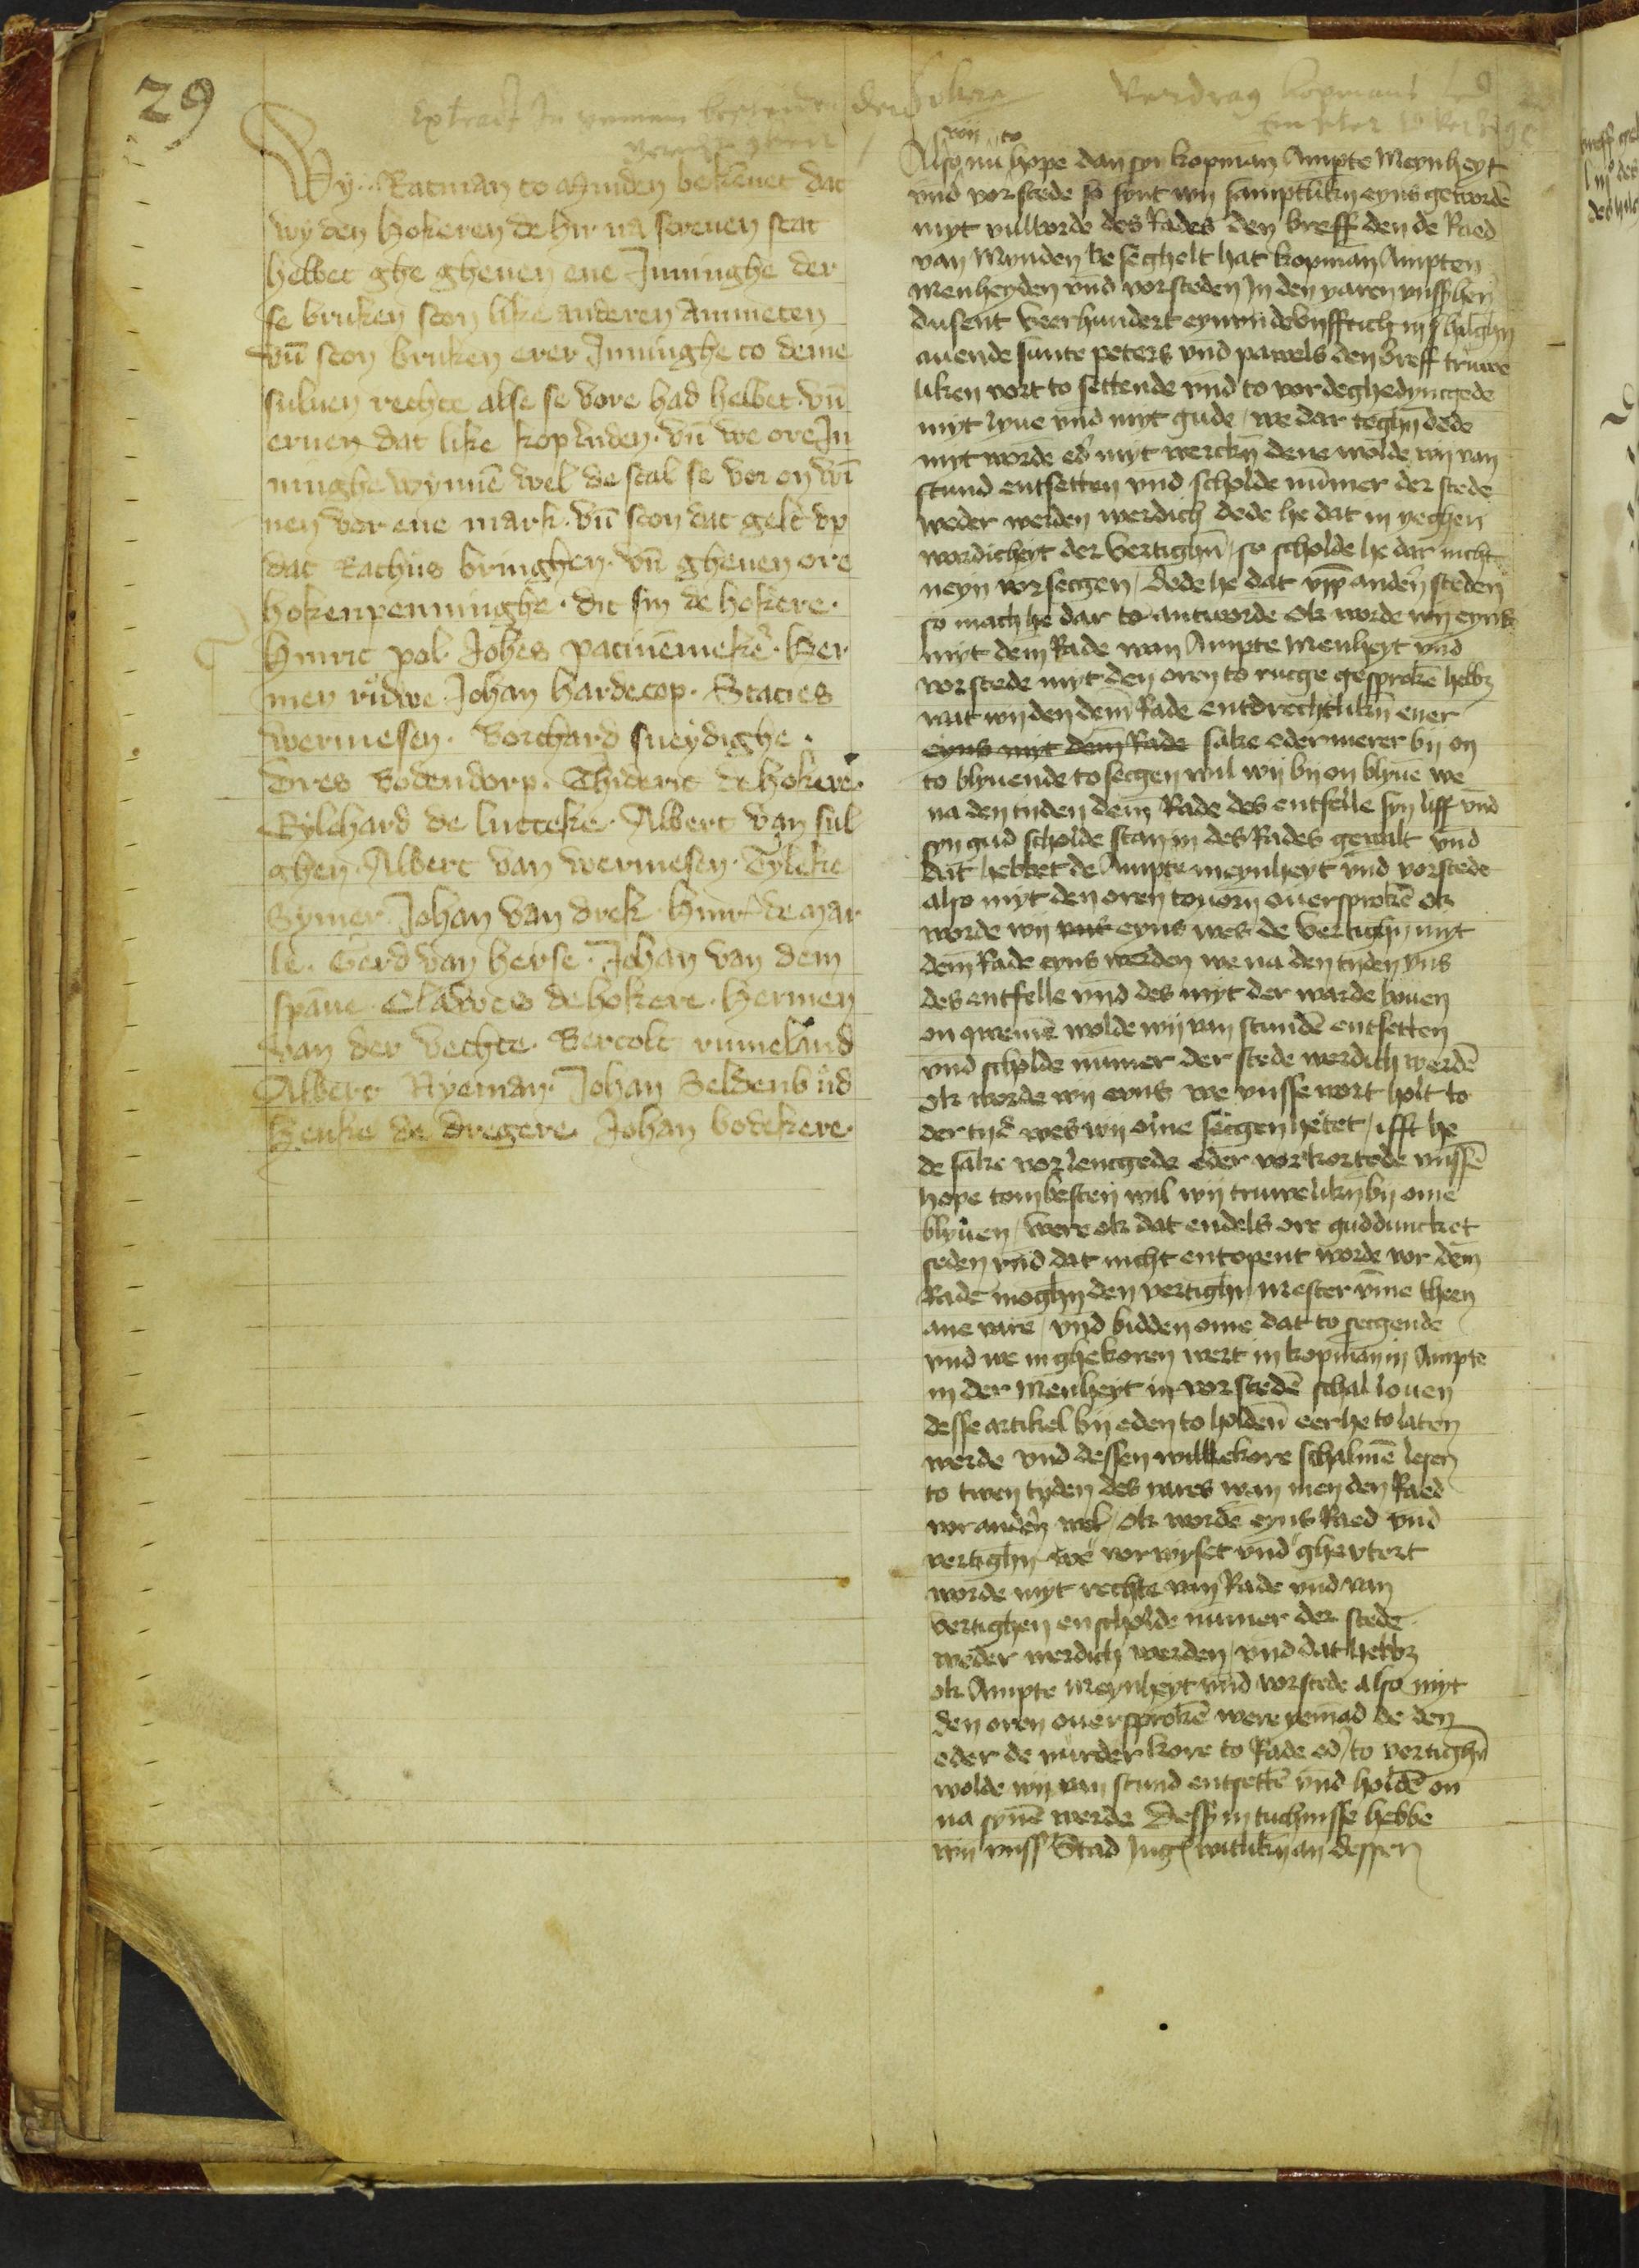 29
Extract In
der hokere
Verdrag kopmans
Wy Ratman to Minden bekēnet dat
wy den Hokeren de hir na screuen stat
hebbet ghe gheuen ene Inninghe der
se bruken scon like anderen Ammeten
vn̄ scon bruken erer Inninghe to deme
suluen rechte alse se vore had hebbet vn̄
eruen dat like kopluden. vn̄ we ore In
ninghe wynnē wel de scal se vor en wī
nen vor ene mark. vn̄ scon dat gelt vp
dat Rathus bringhen. vn̄ gheuen ore
hokenpenninghe. dit sin de hokere.
Hinric pol. Johēs patinēmekē. Her
men rudwe. Johan hardecop. Stacies
wermesen. Borchard sneydighe.
Dres Bodendorp. Thideric de hokere.
Rylchard de lutteke. Albert van sul
ghen. Albert van wermesen. Tyleke
Symer. Johan van drek. hinr̄ de mar
le. Gerd van herse. Johan van dem
spāne. Clawes de hokere. Hermen
van der vechte. Bertolt rumeland
Albert Nyeman. Johan Seldenbud
Henke de dregere. Johan bodekere.
wij to
Also nu hope dan syn kopman Ampte Meynheyt
vnd vorstede so synt wij samptlikn eyns gewordē
myt vulborde des Rades den breff den de Raed
van Mynden be seghelt hat kopman Ampten
menheyden vnd vorsteden In den yaren vnss hern
dusent veerhundert eynvndevyfftich in hilghn
auende sunte peters vnd pawels den breff truwe
liken vort to settende vnd to vordeghedyngede
myt lyue vnd myt gude / we dar teghn dede
myt worde ed myt werckn dene wolde wij van
stund entsetten vnd scholde nūmer der stede
weder werden werdich dede he dat in yeghen
wordicheyt der vertighn / so scholde he dar nicht
neyn vorsecgen / dede he dat vpp andern steden
so mach he dar to antworde Ok worde wij eyns
myt dem Rade wan Ampte menheyt vnd
vorstede myt den oren to rucge gesproken hebbz
wat wij den dem Rade entdrechtlikn ener
eyns myt dem Rade sake eder merer bij on
to blyuende to secgen wil wij bij on blyuē we
na den tyden dem Rade des entfelle syn liff vnd
syn gud scholde stan in des Rades gewalt vnd
dat hebbet de Ampte meynheyt vnd vorstede
also myt den oren touorn ouersprokē ok
worde wij eyns wes de vertighn myt
dem Rade eyns werden we na den tyden vns
des entfelle vnd des myt der warde bouen
on qweme wolde wij van stundē entsetten
vnd scholde nūmer der stede werdich werdē
ok worde wij eyns we vnsse wort holt to
der tyd wes wij ome secgen hetet / ifft he
de sake vorlengede eder vorkortede vnssē
hope tom besten wil wij truwelikn bij ome
blyuen / were ok dat endels ore guddunket
seden vnd dat nicht entopent worde vor dem
Rade moghn den vertighn mester vmē theen
ane vare / vnd bidden ome dat to secgende
vnd we in ghekoren wert in kopman in Ampte
in der Menheyt in vorstedē schal louen
desse artikel bij eden to holden eer he to laten
werde vnd dessen willekore schalmē lesen
to twen tyden des yares wan men den Raed
vorandern wel / ok worde eyns Raed vnd
vertighn we vorwyset vnd ghevtert
worde myt rechte van Rade vnd van
vertighen en scholde nūmer der stede
weder werdich werden / vnd dat hebbz
ok Ampte Meynheyt vnd vorstede also myt
den oren ouersprokē were yemad de den
eder de murder kore to Rade ed to vertighn
wolde wij van stund entsettē vnd holdē on
na synē werde Dess in tuchnisse hebbe
wij vnss Stad Ing witlikn an dessen